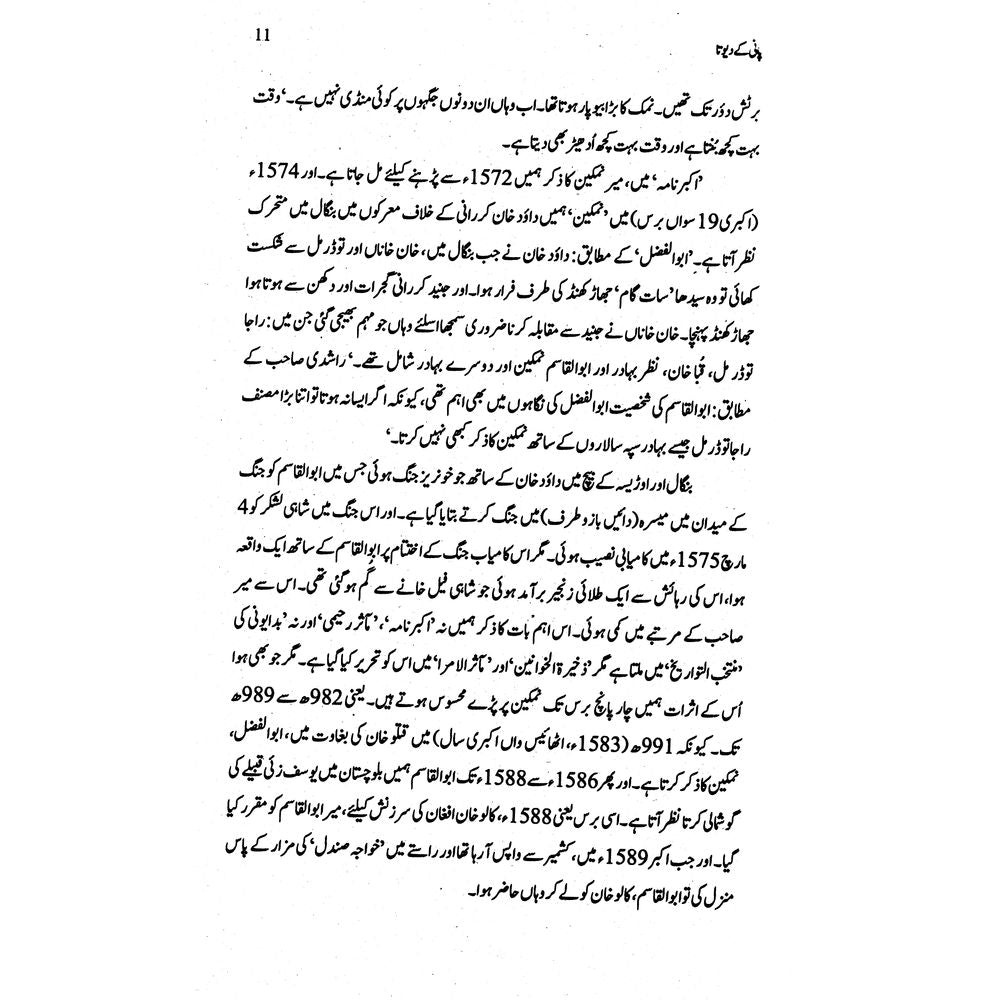 11
پانی کے دیوتا
برٹش دؤر تک تھیں۔ نمک کا بڑا بیوپار ہوتا تھا۔ اب وہاں ان دونوں جگہوں پر کوئی منڈی نہیں ہے۔ ‘وقت
بہت کچھ بُنتا ہے اور وقت بہت کچھ اُدھیڑ بھی دیتا ہے۔
’اکبر نامہ‘ میں، میر نمکین کا ذکر ہمیں 1572ء سے پڑہنے کیلئے مل جاتا ہے۔ اور 1574ء
(اکبری 19 سواں برس) میں ’نمکین‘ ہمیں داؤد خان کررانی کے خلاف معرکوں میں بنگال میں متحرک
نظر آتا ہے۔ ’ابوالفضل‘ کے مطابق: داؤد خان نے جب بنگال میں، خان خاناں اور توڈرمل سے شکست
کھائی تو وہ سیدھا ’سات گام‘ جھاڑکھنڈ کی طرف فرار ہوا۔ اور جنید کررانی گجرات اور دکھن سے ہوتا ہوا
جھاڑکھنڈ پہنچا۔ خان خاناں نے جنید سے مقابلہ کرنا ضروری سمجھا اسلئے وہاں جو مہم بھیجی گئی جن میں: راجا
توڈرمل، قُبا خان، نظر بہادر اور ابوالقاسم نمکین اور دوسرے بہادر شامل تھے۔‘ راشدی صاحب کے
مطابق: ابوالقاسم کی شخصیت ابوالفضل کی نگاہوں میں بھی اہم تھی، کیونکہ اگر ایسا نہ ہوتا تو اتنا بڑا مصنف
راجا توڈرمل جیسے بہادر سپہ سالاروں کے ساتھ نمکین کا ذکر کبھی نہیں کرتا۔‘
بنگال اور اوڑیسہ کے بیچ میں داؤد خان کے ساتھ جو خونریز جنگ ہوئی جس میں ابوالقاسم کو جنگ
کے میدان میں میسرہ (دائیں بازو طرف) میں جنگ کرتے بتایا گیا ہے۔ اور اس جنگ میں شاہی لشکر کو 4
مارچ 1575ء میں کامیابی نصیب ہوئی۔ مگر اس کامیاب جنگ کے اختتام پر ابوالقاسم کے ساتھ ایک واقعہ
ہوا، اس کی رہائش سے ایک طلائی زنجیر برآمد ہوئی جو شاہی فیل خانے سے گُم ہو گئی تھی۔ اس سے میر
صاحب کے مرتبے میں کمی ہوئی۔ اس اہم بات کا ذکر ہمیں نہ ’اکبر نامہ‘، ’مآثر رحیمی‘ اور نہ ’بدایونی کی
’منتخب التواریخ‘ میں ملتا ہے مگر ’ذخیرۃ الخوانین‘ اور ’مآثر الامرا‘ میں اس کو تحریر کیا گیا ہے۔ مگر جو بھی ہوا
اُس کے اثرات ہمیں چار پانچ برس تک نمکین پر پڑے محسوس ہوتے ہیں۔ یعنی 982ھ سے 989ھ
تک۔ کیونکہ 991ھ (1583ء، اٹھائیس واں اکبری سال) میں قتلو خان کی بغاوت میں، ابوالفضل،
نمکین کا ذکر کرتا ہے۔ اور پھر 1586ء سے 1588ء تک ابوالقاسم ہمیں بلوچستان میں یوسف زئی قبیلے کی
گوشمالی کرتا نظر آتا ہے۔ اسی برس یعنی 1588ء، کالو خان افغان کی سرزنش کیلئے، میر ابوالقاسم کو مقرر کیا
گیا۔ اور جب اکبر 1589ء میں، کشمیر سے واپس آ رہا تھا اور راستے میں ’خواجہ صندل‘ کی مزار کے پاس
منزل کی تو ابوالقاسم، کالو خان کو لے کر وہاں حاضر ہوا۔